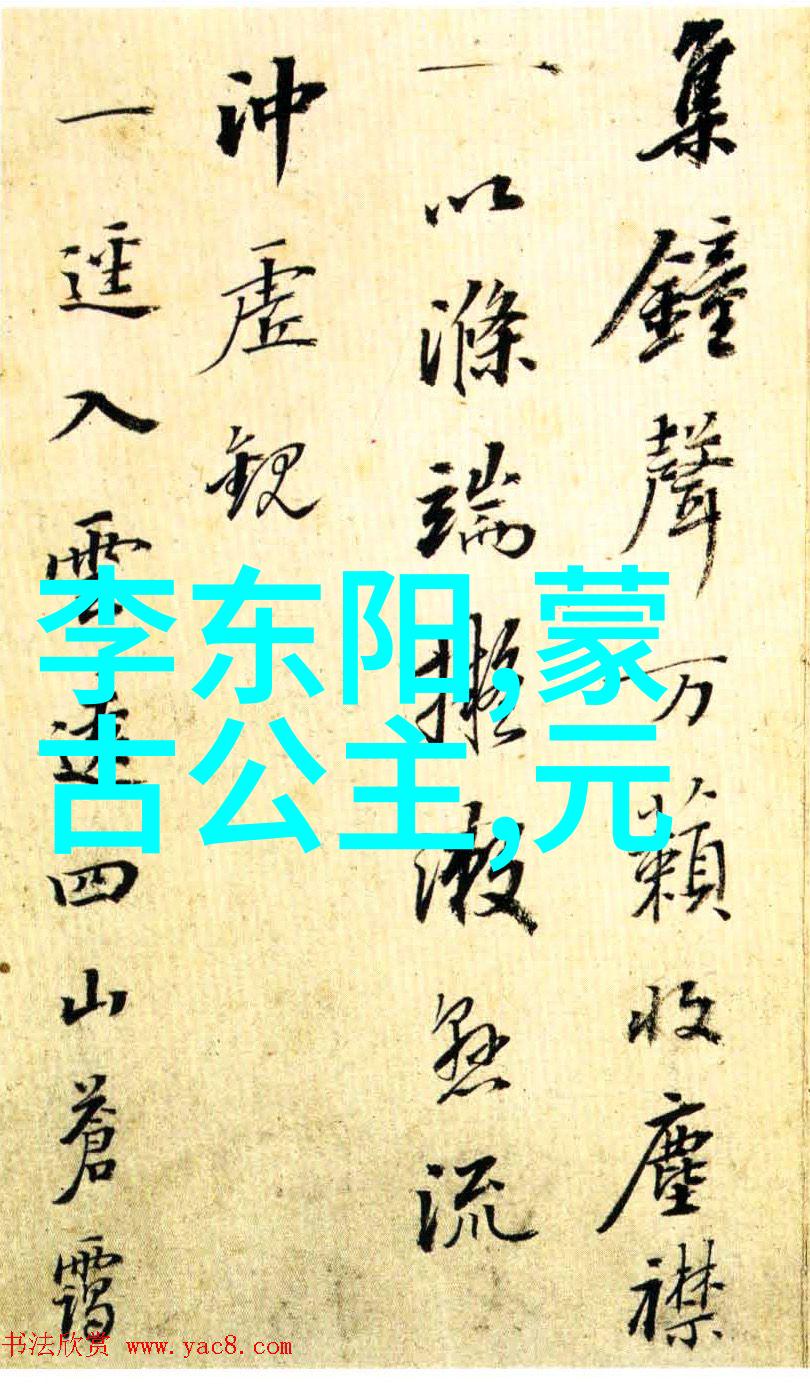 集鐘聲万籟收塵襟
一以滌端擬漱流
沖虛觀
一逕入雲遠四山蒼靄
李东阳,蒙
古公主,元
书法欣赏 www.yac8.com